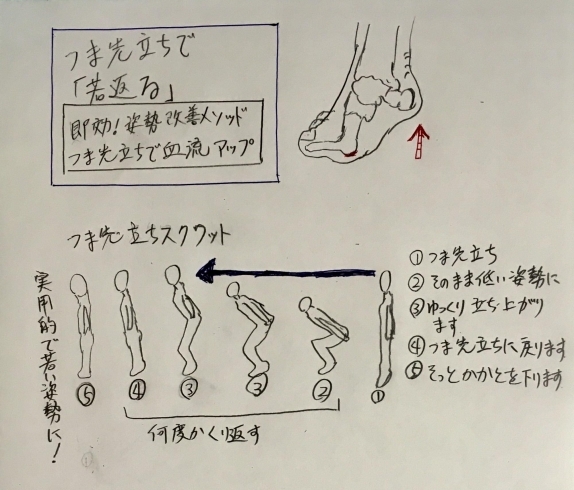 つま先立ちで
「若返る」
即効!姿勢改善メソッド
つま先立ちで血流アップ
つま先立ちスクワット
①つま先立ち
②そのまま低い姿勢に
③ゆっくり立ち上がり
ます
④つま先立ちに戻ります
⑤そっとかかとを下ります
実用的で若い姿勢に!
⑤ ④ ③ ③ ② ①
何度かくり返す